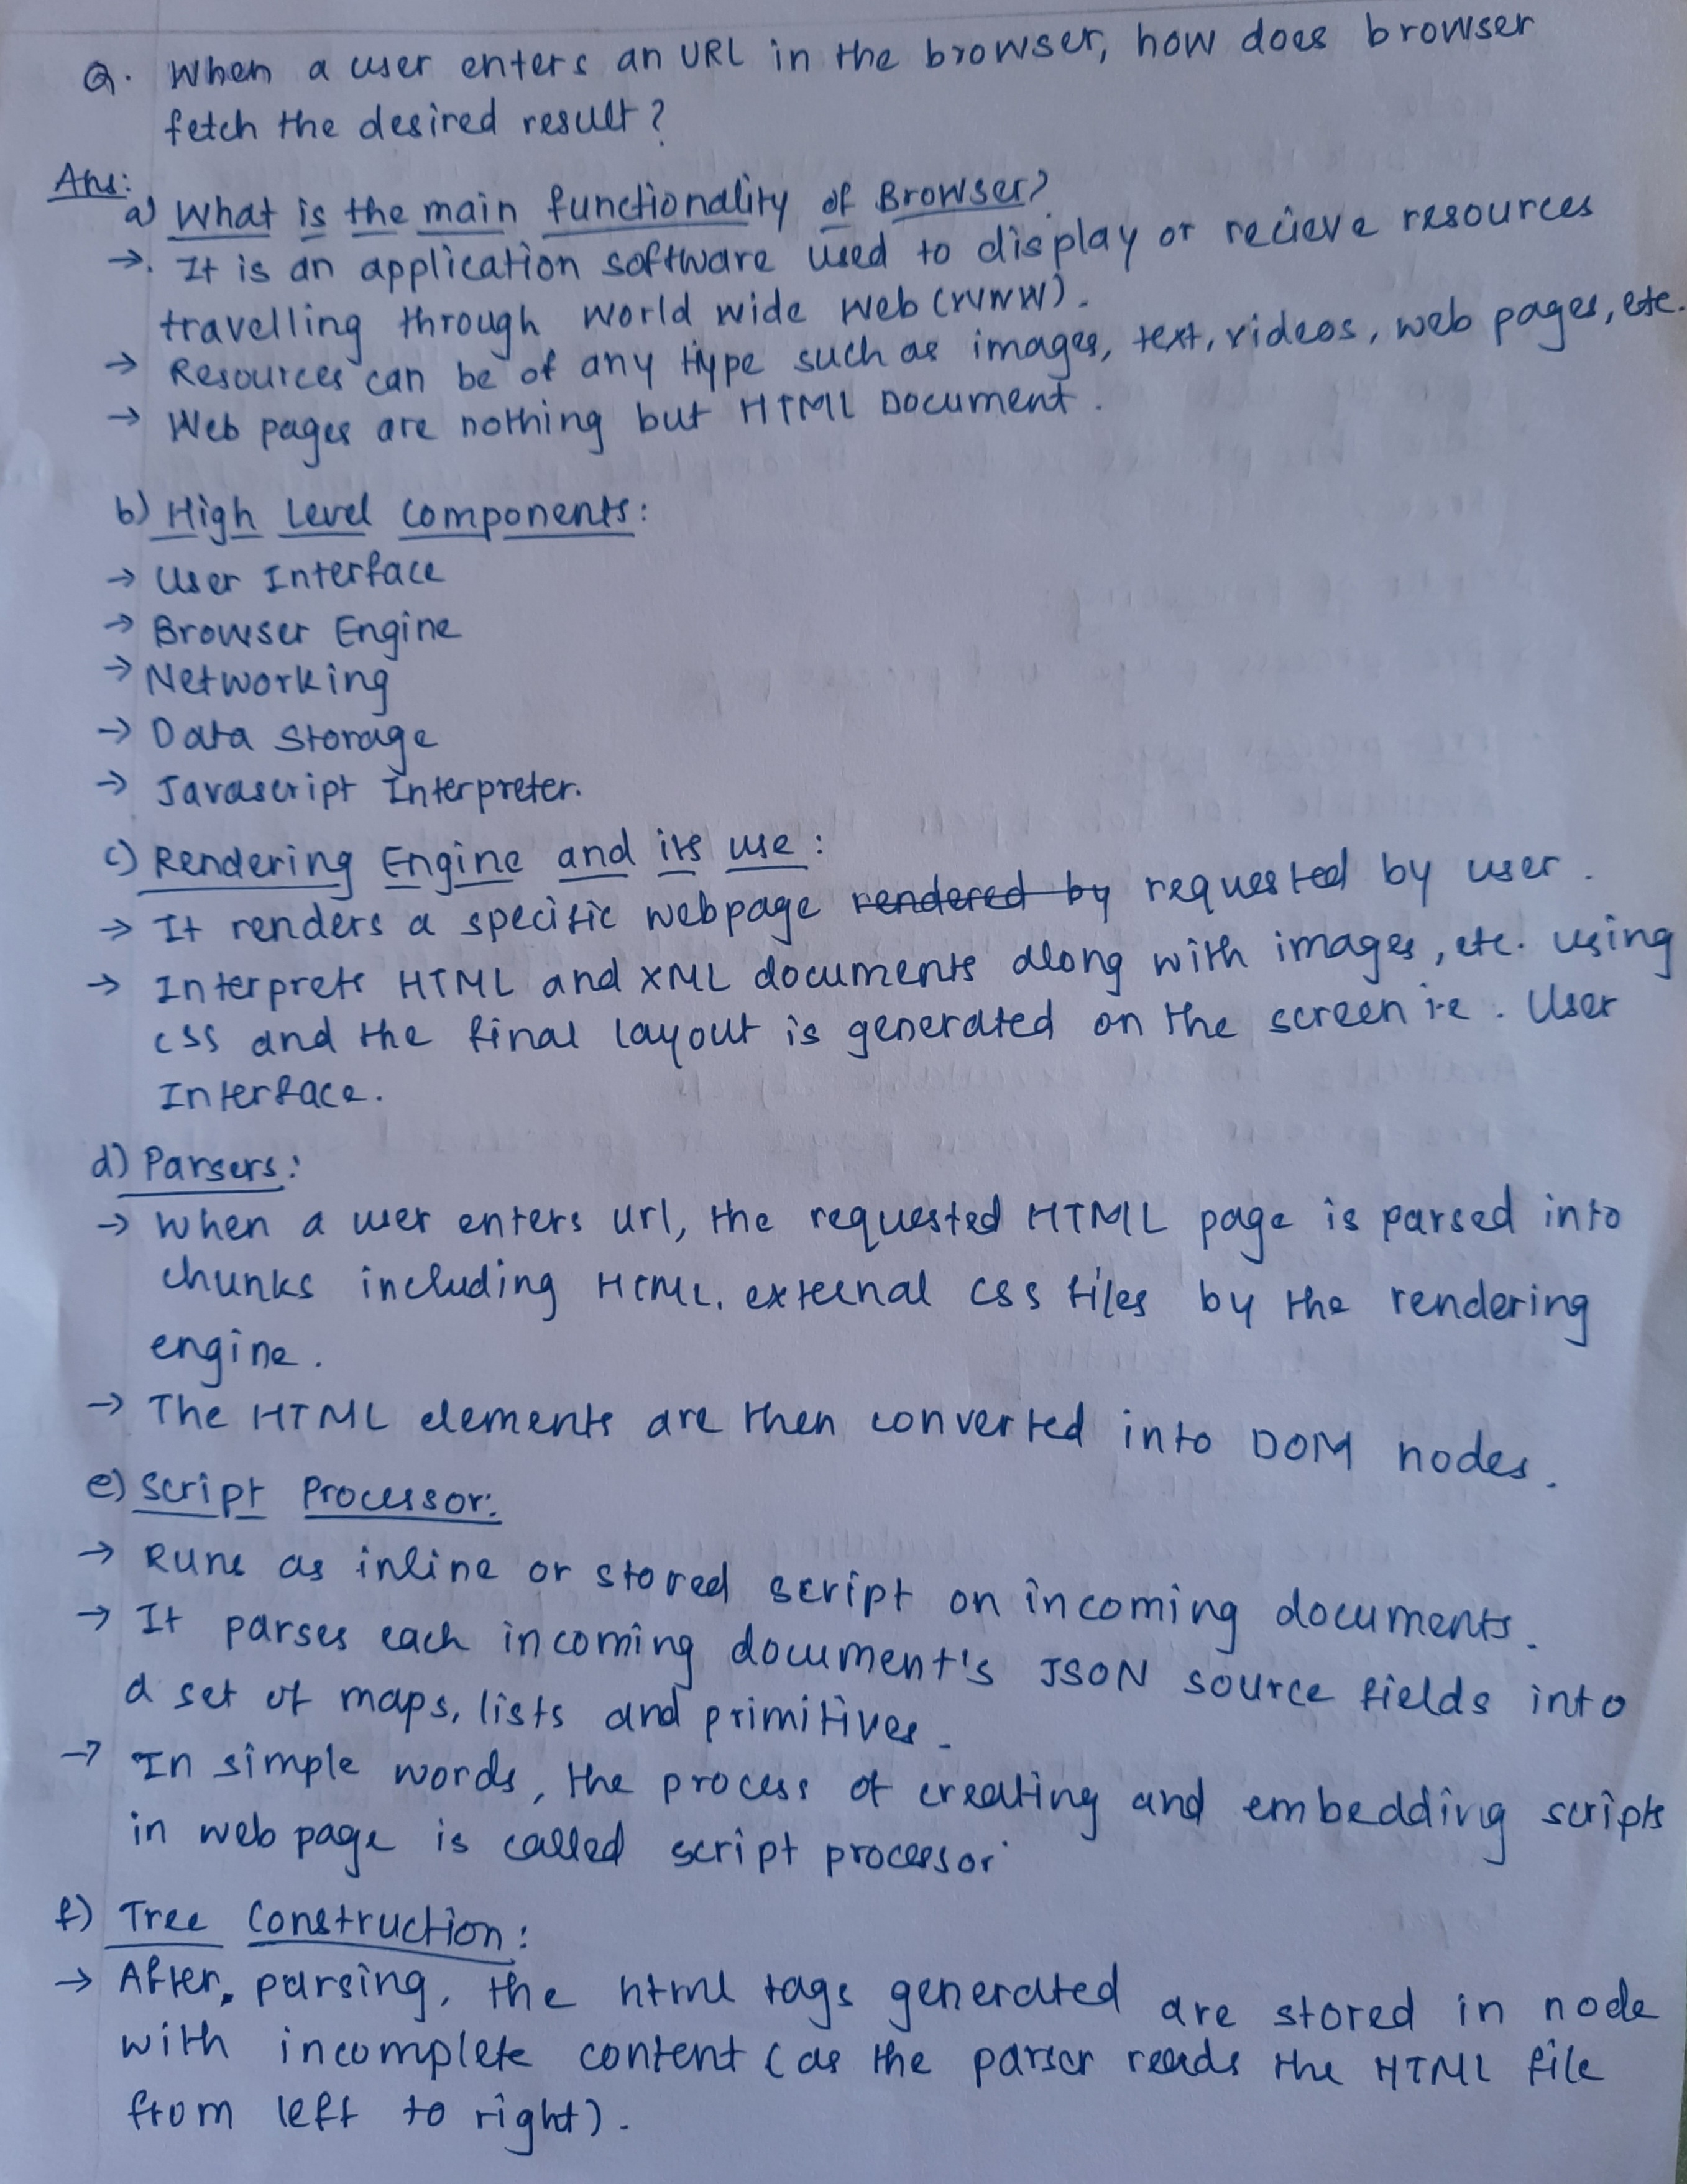 Q. When a user enters an URL in the browser, how does browser
fetch the desired result?
Ans:
a) What is the main functionality of Browser?
→. It is an application software used to display or recieve resources
travelling through world wide web (WWW).
→ Resources can be of any type such as images, text, videos, web pages, etc.
→ Web pages are nothing but HTML Document.
b) High Level Components:
→ User Interface
→ Browser Engine
→ Networking
→ Data Storage
→ Javascript Interpreter.
c) Rendering Engine and its use:
→ It renders a specific webpage rendered by requested by user.
→ Interprets HTML and XML documents along with images, etc. using
CSS and the final layout is generated on the screen i.e. User
Interface.
d) Parsers:
→ When a user enters url, the requested HTML page is parsed into
chunks including HTML, external css files by the rendering
engine.
→ The HTML elements are then converted into DOM nodes.
e) Script Processor:
→ Runs as inline or stored script on incoming documents.
→ It parses each incoming document's JSON source fields into
a set of maps, lists and primitives.
→ In simple words, the process of creating and embedding scripts
in web page is called script processor.
f) Tree Construction:
→ After, parsing, the html tags generated are stored in node
with incomplete content (as the parser reads the HTML file
from left to right).